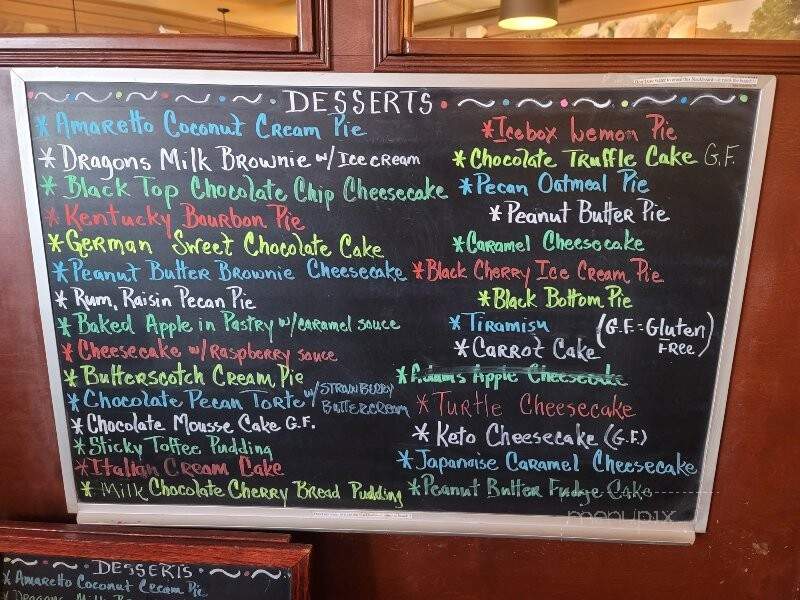 DESSERTS
* Amaretto Coconut Cream Pie
* Dragons Milk Brownie w/ Ice cream
* Black Top Chocolate Chip Cheesecake
* Kentucky Bourbon Pie
* German Sweet Chocolate Cake
* Peanut Butter Brownie Cheesecake
* Rum, Raisin Pecan Pie
* Baked Apple in Pastry w/caramel sauce
* Cheesecake w/Raspberry sauce
* Butterscotch Cream Pie
* Chocolate Pecan Torte w/ STRAWBERRY BUTTERCREAM
* Chocolate Mousse Cake G.F.
* Sticky Toffee Pudding
* Italian Cream Cake
* Milk Chocolate Cherry Bread Pudding
* Icebox Lemon Pie
* Chocolate Truffle Cake G.F.
* Pecan Oatmeal Pie
* Peanut Butter Pie
* Caramel Cheesecake
* Black Cherry Ice Cream Pie
* Black Bottom Pie
* Tiramisu
(G.F. = Gluten Free)
* Carrot Cake
* Adams Apple Cheesecake
* Turtle Cheesecake
* Keto Cheesecake (G.F.)
* Japanaise Caramel Cheesecake
* Peanut Butter Fudge Cake
menupix
DESSERTS
* Amaretto Coconut Cream Pie
* Dragons Milk